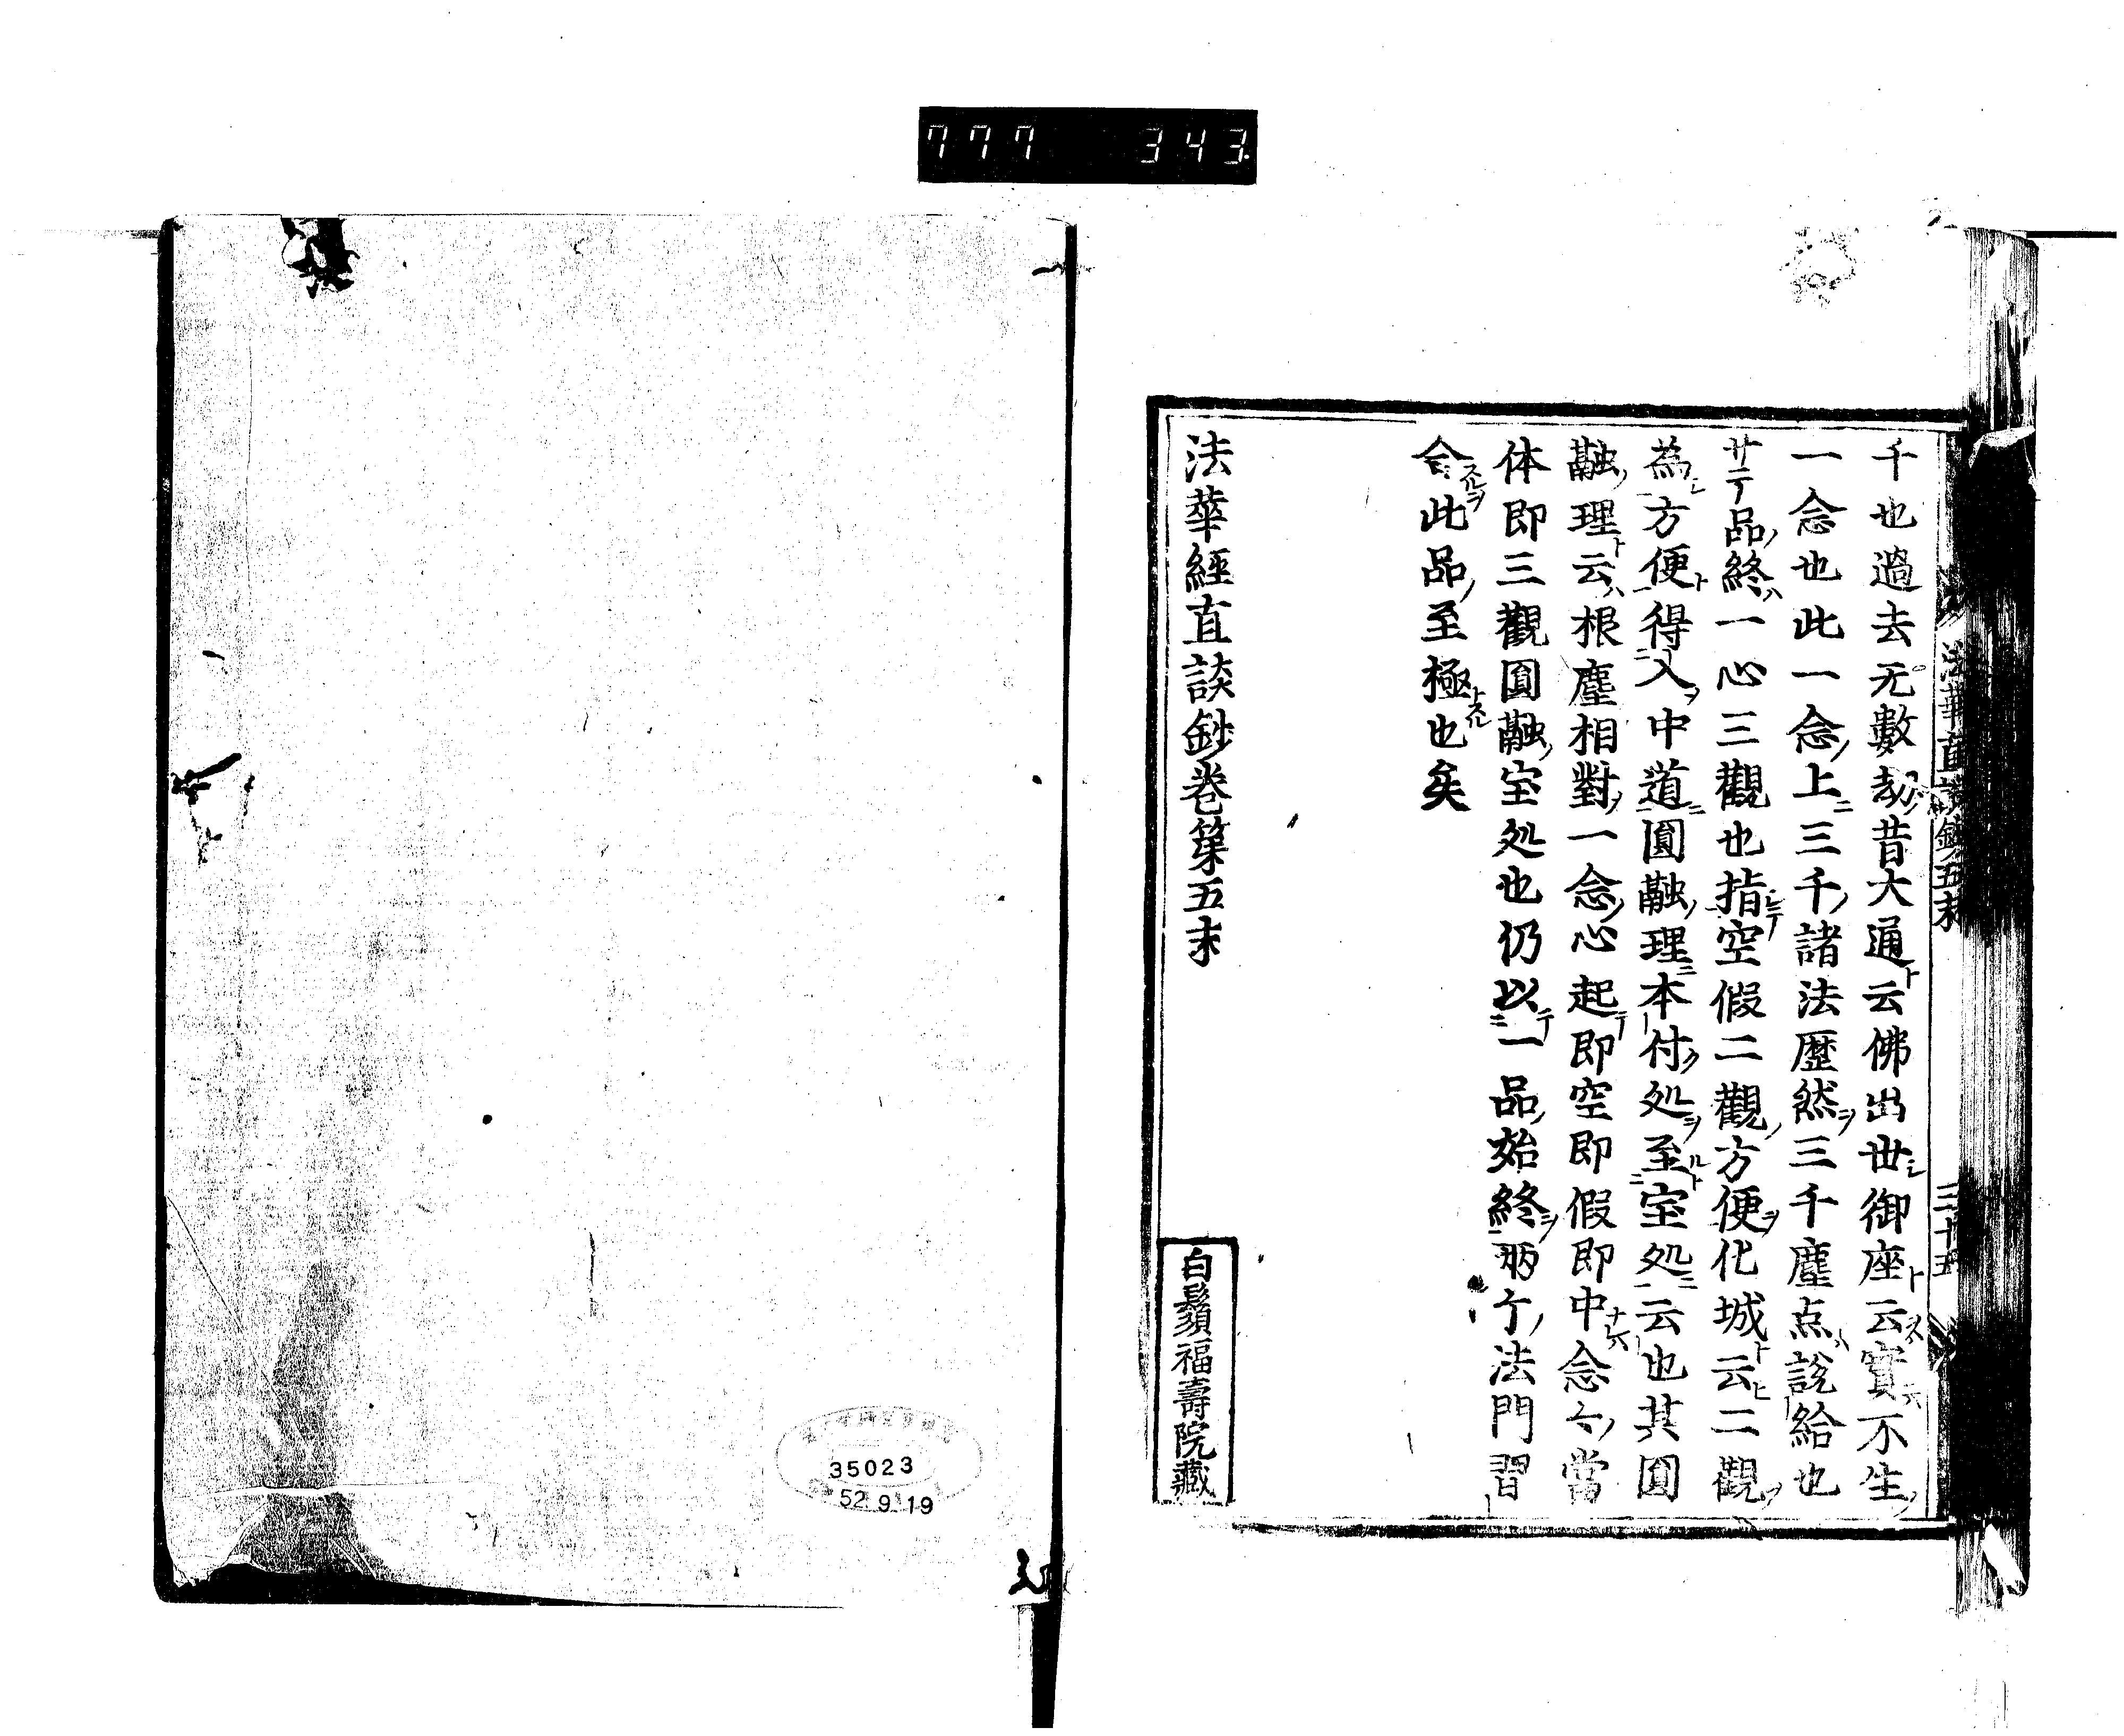 777 343.
法華直談鈔五末 三十五
千也過去无數劫ノ昔大通ト云佛出世シ御座ト云ス實ハ不生ノ
一念也此一念ノ上ニ三千ノ諸法歷然ヲ三千塵点ハ說給也
サテ品ノ終ハ一心三觀也指シテ空假二觀ノ方便ヲ化城ト云ヒ二觀ヲ
為シ方便ト得入ヲ中道ニ圓融ノ理ニ本付ク処ヲ至ルト宝処ニ云也其圓
融ノ理ト云ハ根塵相對ノ一念ノ心起テ即空即假即中ナレハ念々ノ當
体即三觀圓融ノ宝処也仍以テ一品ノ始終ヲ兩ケノ法門習
合スルヲ此品ノ至極トスル也矣
法華經直談鈔巻第五末
白鬚福壽院藏
35023
52 9 19